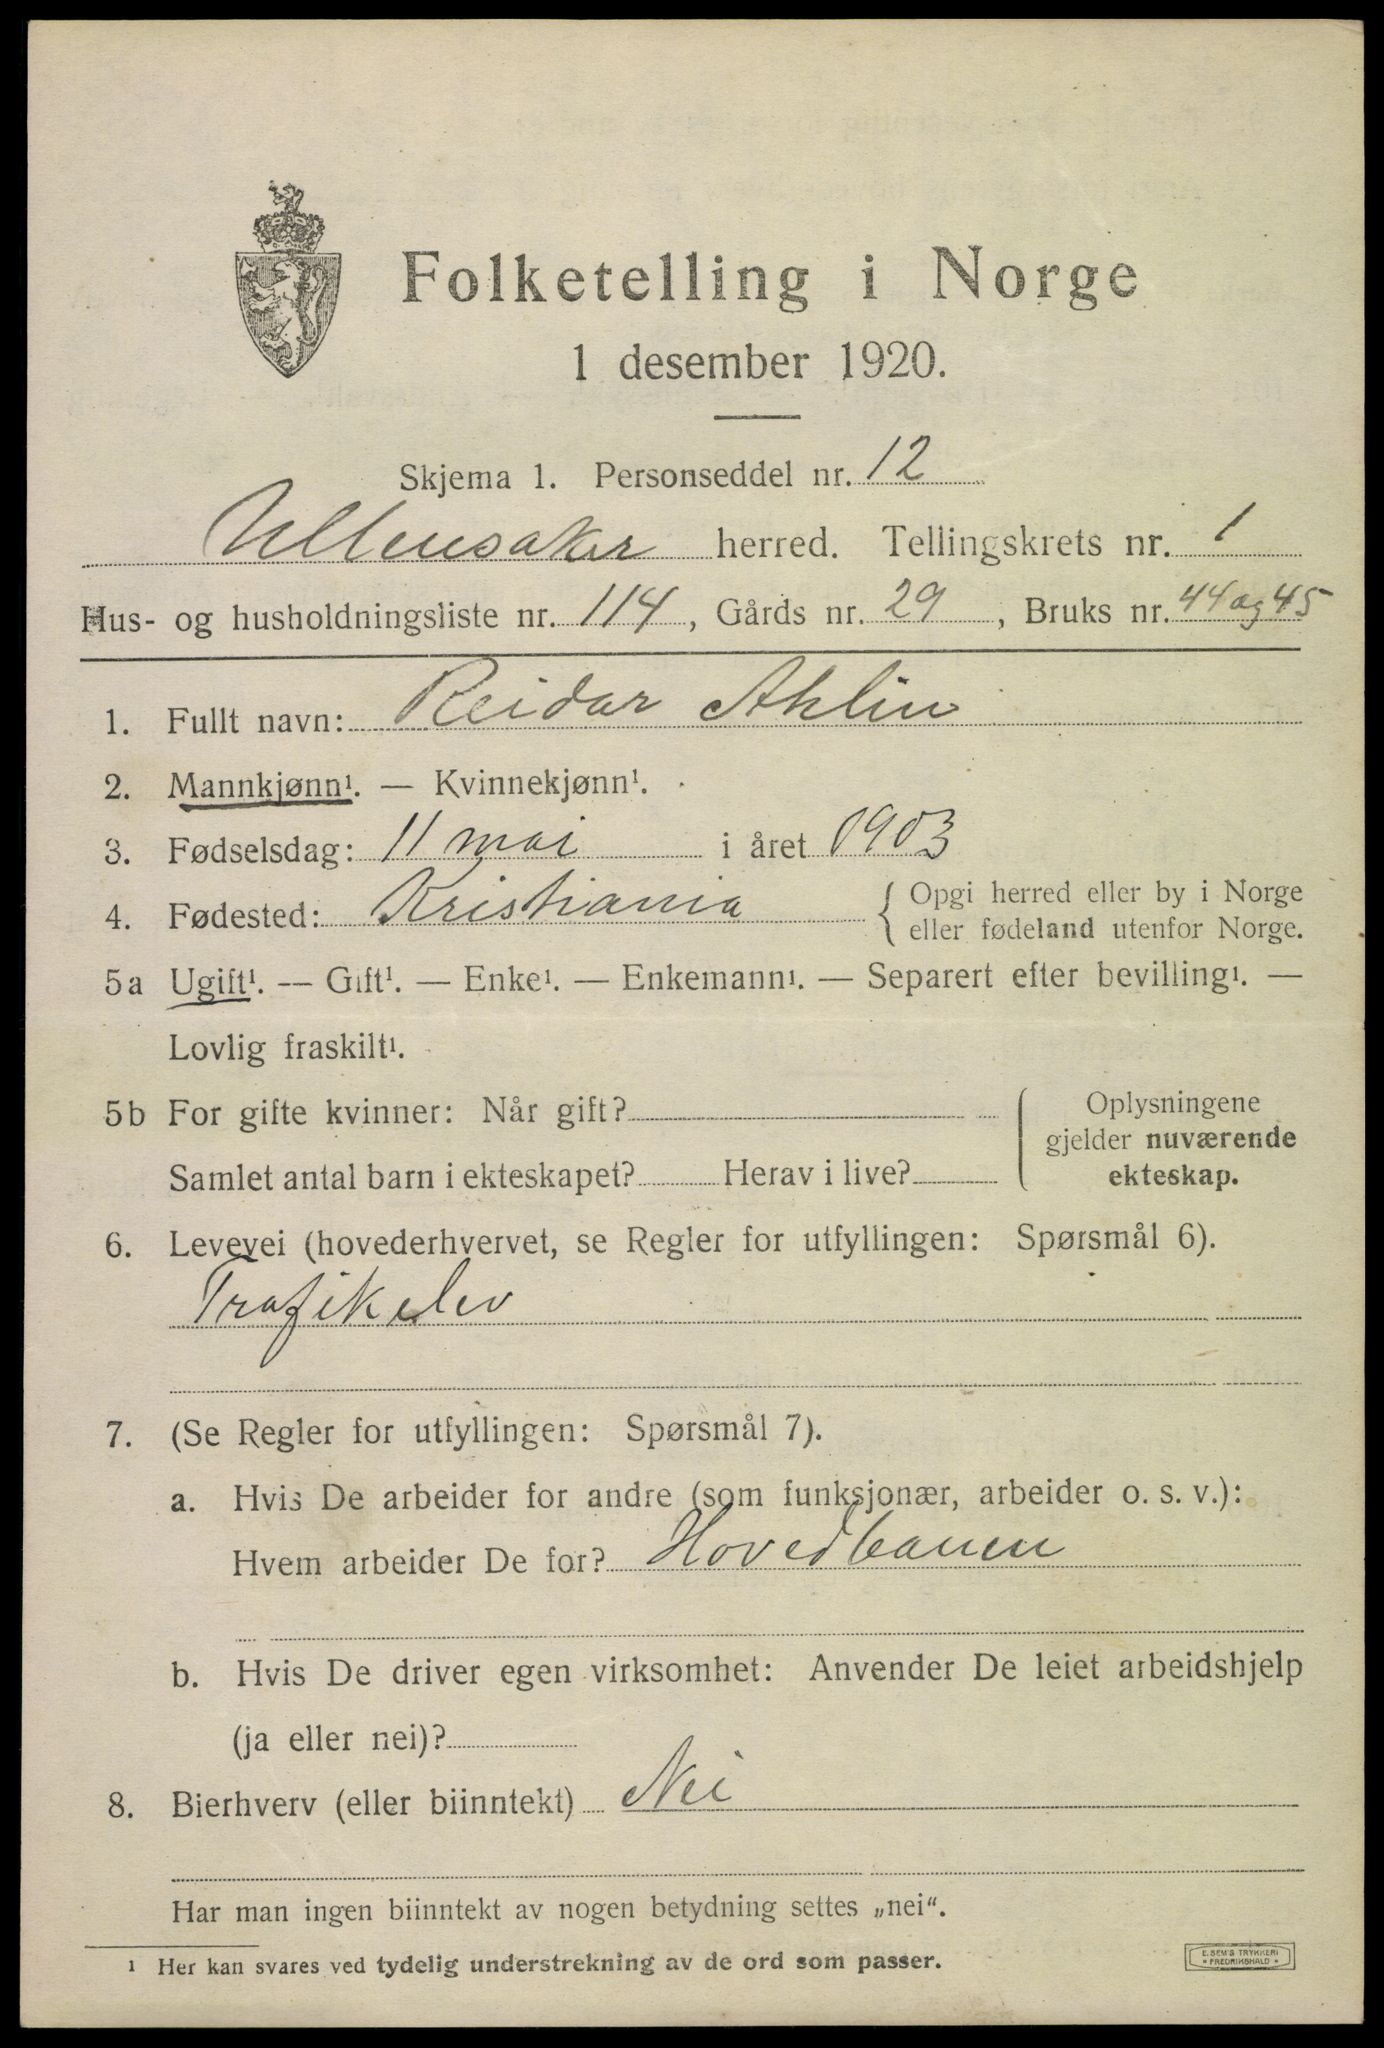 Folketelling i Norge
1 desember 1920.
Skjema 1. Personseddel nr. 12
Ullensaker herred. Tellingskrets nr. 1
Hus- og husholdningsliste nr. 114, Gårds nr. 29, Bruks nr. 44 og 45
1. Fullt navn: Reidar Ahlin
2. Mannkjønn¹. — Kvinnekjønn¹.
3. Fødselsdag: 11 mai i året 1903
4. Fødested: Kristiania { Opgi herred eller by i Norge
eller fødeland utenfor Norge.
5a Ugift¹. — Gift¹. — Enke¹. — Enkemann¹. — Separert efter bevilling¹. —
Lovlig fraskilt¹.
5b For gifte kvinner: Når gift? { Oplysningene
gjelder nuværende
Samlet antal barn i ekteskapet? Herav i live? ekteskap.
6. Levevei (hovederhvervet, se Regler for utfyllingen: Spørsmål 6).
Trafikelev
7. (Se Regler for utfyllingen: Spørsmål 7).
a. Hvis De arbeider for andre (som funksjonær, arbeider o. s. v.):
Hvem arbeider De for? Hovedbanen
b. Hvis De driver egen virksomhet: Anvender De leiet arbeidshjelp
(ja eller nei)?
8. Bierhverv (eller biinntekt) Nei
Har man ingen biinntekt av nogen betydning settes „nei“.
¹ Her kan svares ved tydelig understrekning av de ord som passer.
E. SEM'S TRYKKERI
* FREDRIKSHALD *